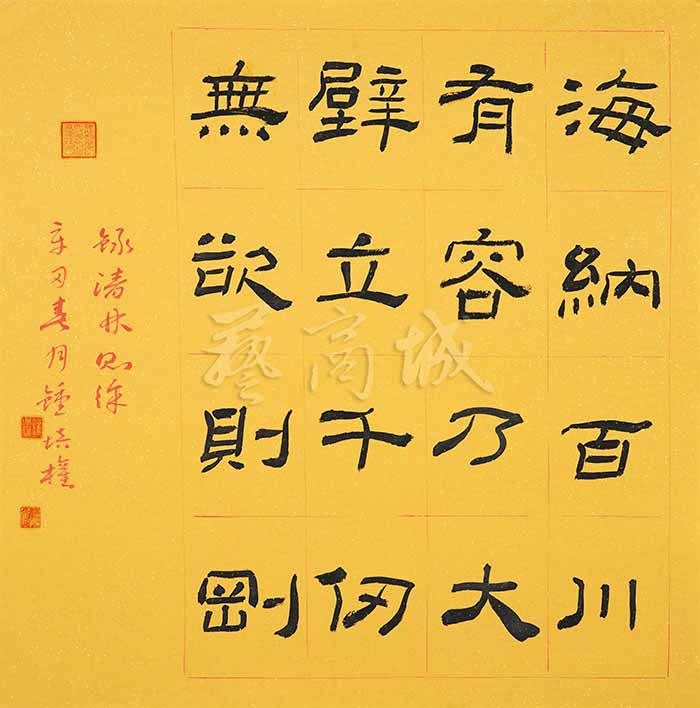 海納百川
有容乃大
壁立千仞
無欲則剛
錄清林則徐
辛丑春月鍾培權
藝商城